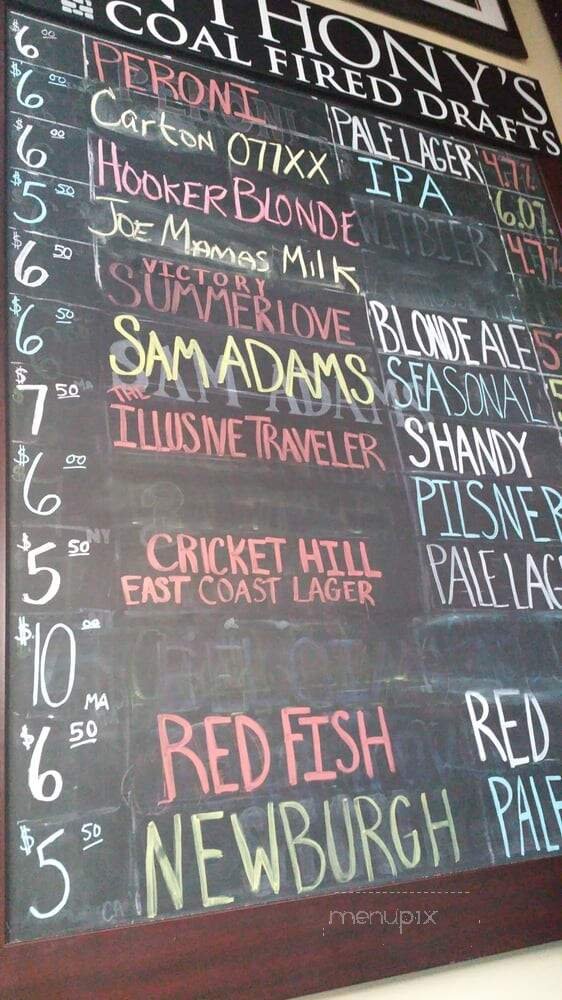 ANTHONY'S
COAL FIRED DRAFTS
$6 00 PERONI PALE LAGER 4.7%
$6 00 Carton 077XX IPA 6.0%
$6 00 HOOKER BLONDE WITBIER 4.7%
$5 50 JOE MAMAS MilK
$6 50 VICTORY
SUMMERLOVE BLONDE ALE
$6 50 SAM ADAMS SEASONAL
$7 50 THE
ILLUSIVE TRAVELER SHANDY
$6 00 PILSNER
$5 50 CRICKET HILL
EAST COAST LAGER PALE LAG
$10 00 MA
$6 50 RED FISH RED
$5 50 NEWBURGH PALE
menupix